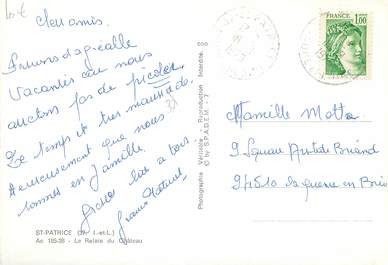 10€
Cher amis.
Prenons d'agréable
Vacances car nous
avons pas de picoler
Le temps et très maussade.
Heureusement que nous
sommes en famille.
Gros bec a tous
ST-PATRICE (37 I.-et-L.)
Ae 185-38 - Le Relais du Château
Photographie Véritable - Reproduction Interdite.
© by S.P.A.D.E.M. - 7
FRANCE
1,00
Famille Motta
9 Square Aristide Briand
94510 la queue en Brie